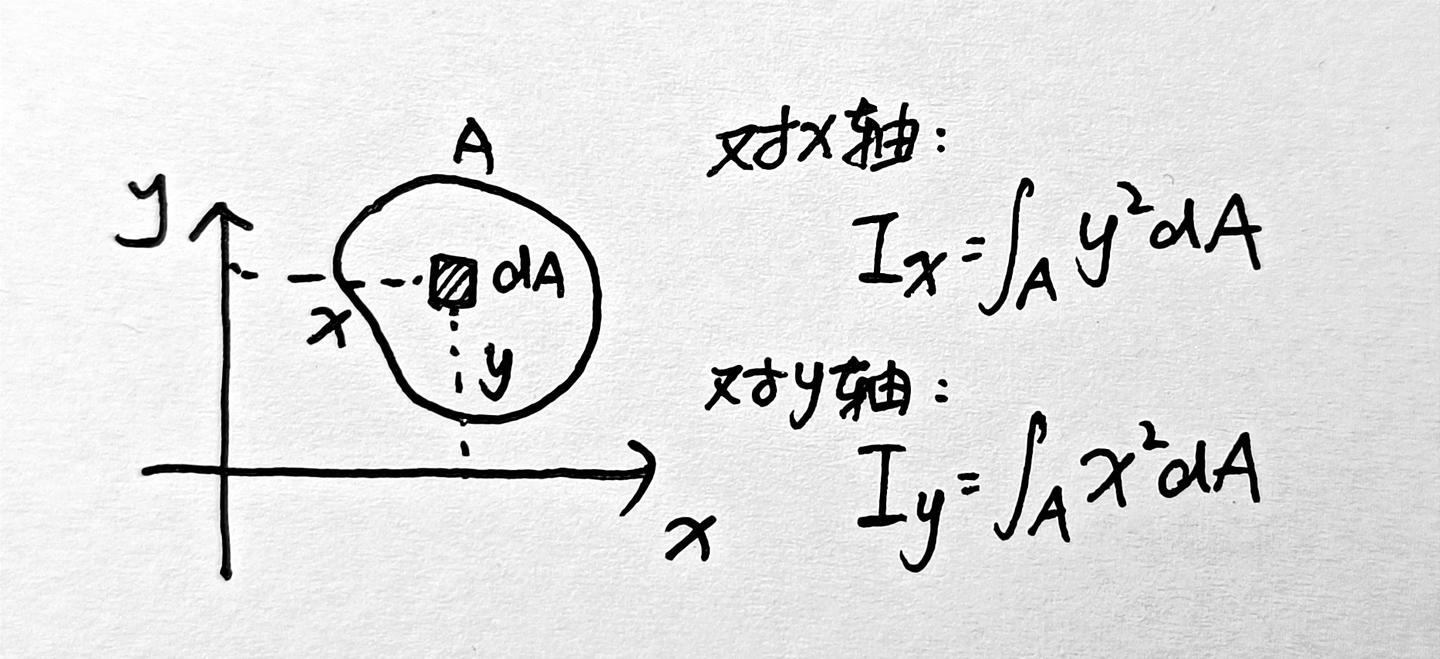 A
y
dA
x
y
x
对x轴:
I_x=∫_A y²dA
对y轴:
I_y=∫_A x²dA